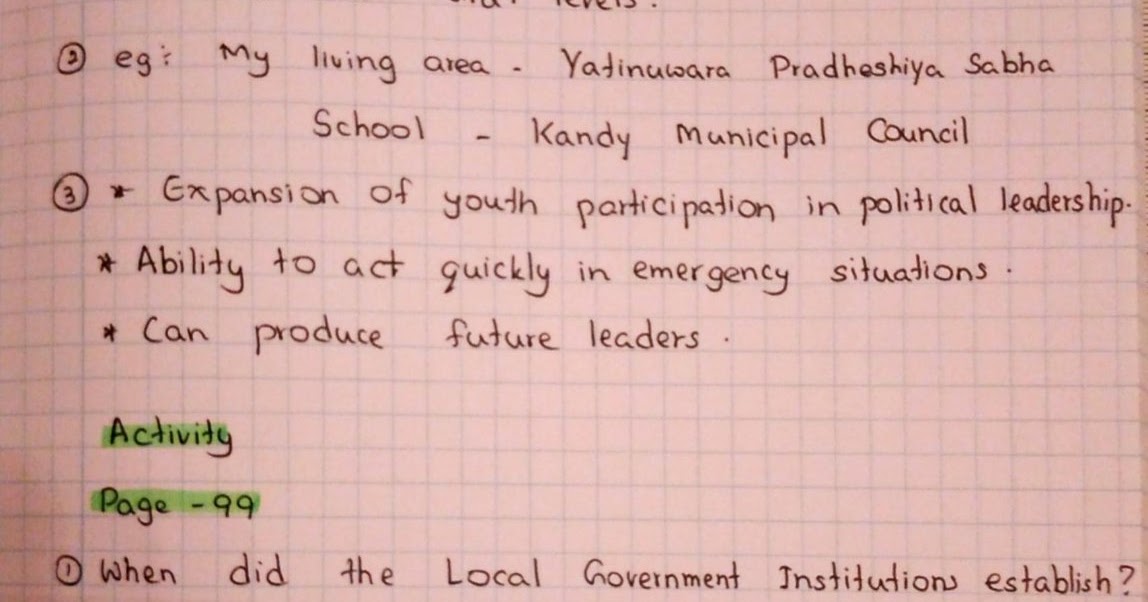 levels.
② eg: My living area - Yatinuwara Pradheshiya Sabha
School - Kandy Municipal Council
③ * Expansion of youth participation in political leadership.
* Ability to act quickly in emergency situations.
* Can produce future leaders.
Activity
Page - 99
① When did the Local Government Institutions establish?